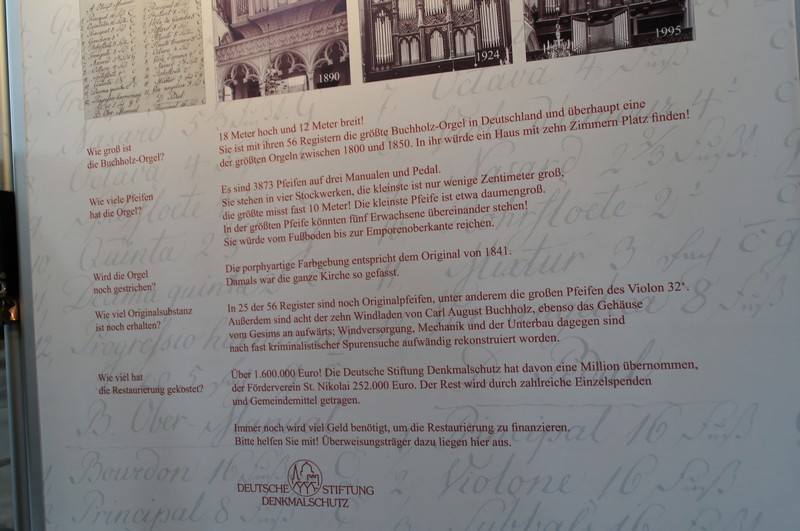 1890
1924
1995
Wie groß ist
die Buchholz-Orgel?
18 Meter hoch und 12 Meter breit!
Sie ist mit ihren 56 Registern die größte Buchholz-Orgel in Deutschland und überhaupt eine
der größten Orgeln zwischen 1800 und 1850. In ihr würde ein Haus mit zehn Zimmern Platz finden!
Wie viele Pfeifen
hat die Orgel?
Es sind 3873 Pfeifen auf drei Manualen und Pedal.
Sie stehen in vier Stockwerken, die kleinste ist nur wenige Zentimeter groß,
die größte misst fast 10 Meter! Die kleinste Pfeife ist etwa daumengroß.
In der größten Pfeife könnten fünf Erwachsene übereinander stehen!
Sie würde vom Fußboden bis zur Emporenoberkante reichen.
Wird die Orgel
noch gestrichen?
Die porphyartige Farbgebung entspricht dem Original von 1841.
Damals war die ganze Kirche so gefasst.
Wie viel Originalsubstanz
ist noch erhalten?
In 25 der 56 Register sind noch Originalpfeifen, unter anderem die großen Pfeifen des Violon 32‘.
Außerdem sind acht der zehn Windladen von Carl August Buchholz, ebenso das Gehäuse
vom Gesims an aufwärts; Windversorgung, Mechanik und der Unterbau dagegen sind
nach fast kriminalistischer Spurensuche aufwändig rekonstruiert worden.
Wie viel hat
die Restaurierung gekostet?
Über 1.600.000 Euro! Die Deutsche Stiftung Denkmalschutz hat davon eine Million übernommen,
der Förderverein St. Nikolai 252.000 Euro. Der Rest wird durch zahlreiche Einzelspenden
und Gemeindemittel getragen.
Immer noch wird viel Geld benötigt, um die Restaurierung zu finanzieren.
Bitte helfen Sie mit! Überweisungsträger dazu liegen hier aus.
DEUTSCHE STIFTUNG
DENKMALSCHUTZ
Octava 4 Fuß
Nasard
Quinta 2
Mixtur 3 fach
B Ober-Manual
Principal 16 Fuß
Bourdon 16 Fuß
Violone 16 Fuß
Principal 8 Fuß